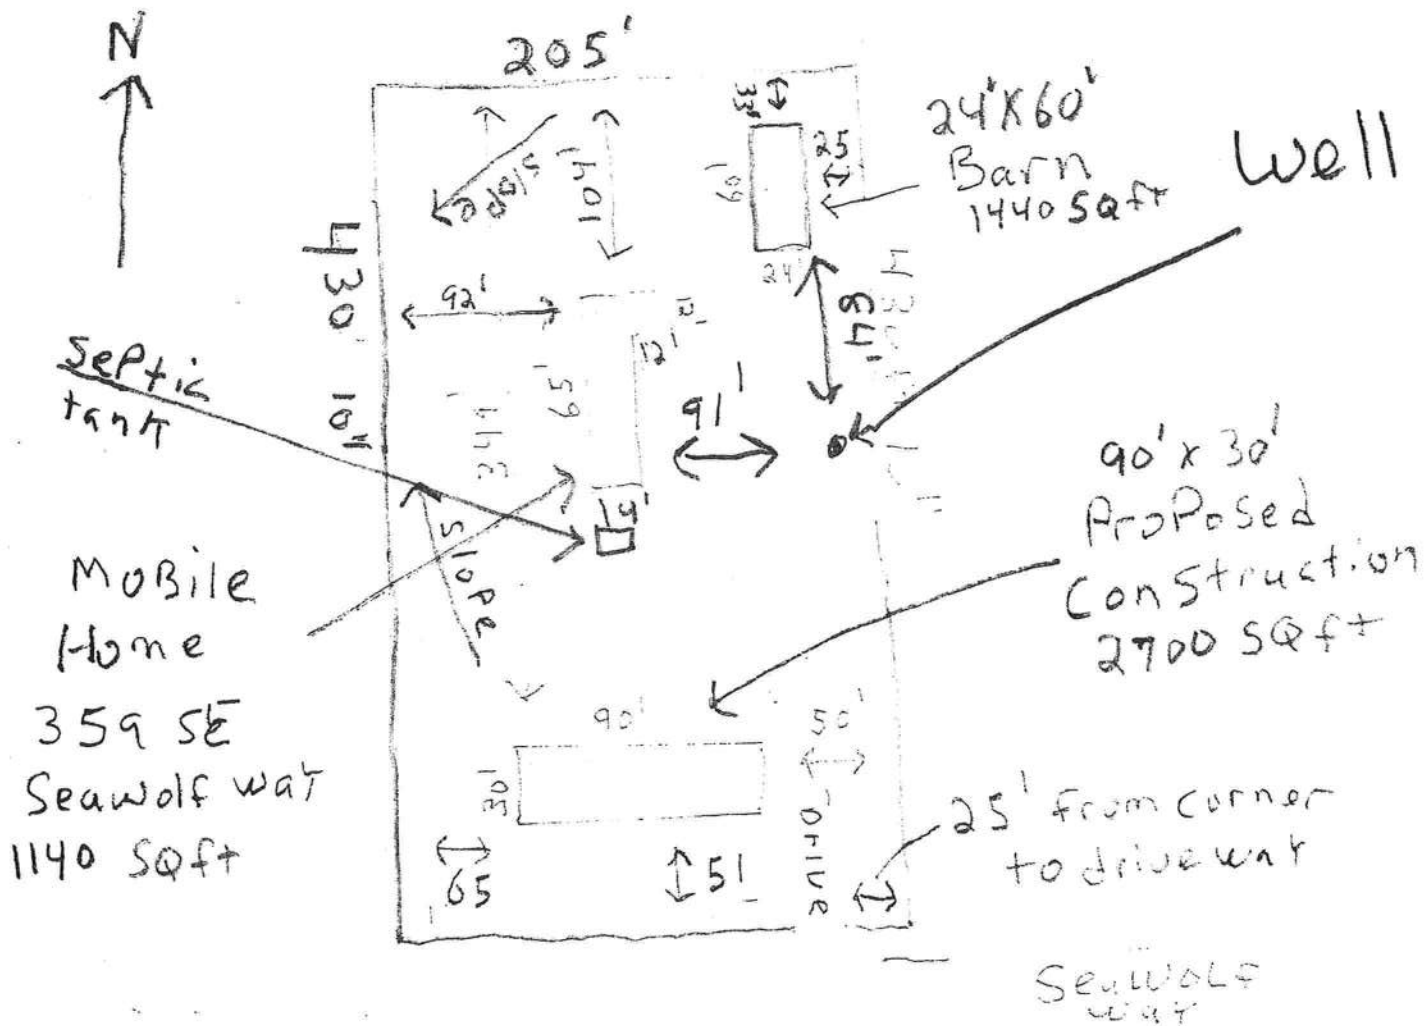 N
205'
33'
24'X60'
Barn
1440 SQft
Well
25
60'
24'
slope
104'
430'
10"
92'
84'
12'
65'
344'
91'
Septic
tank
14'
slope
90' x 30'
ProPosed
Construction
2700 SQft
MoBile
Home
359 SE
Seawolf way
1140 SQft
90'
50'
30'
65
51'
Drive
25' from corner
to driveway
SeaWolf
way